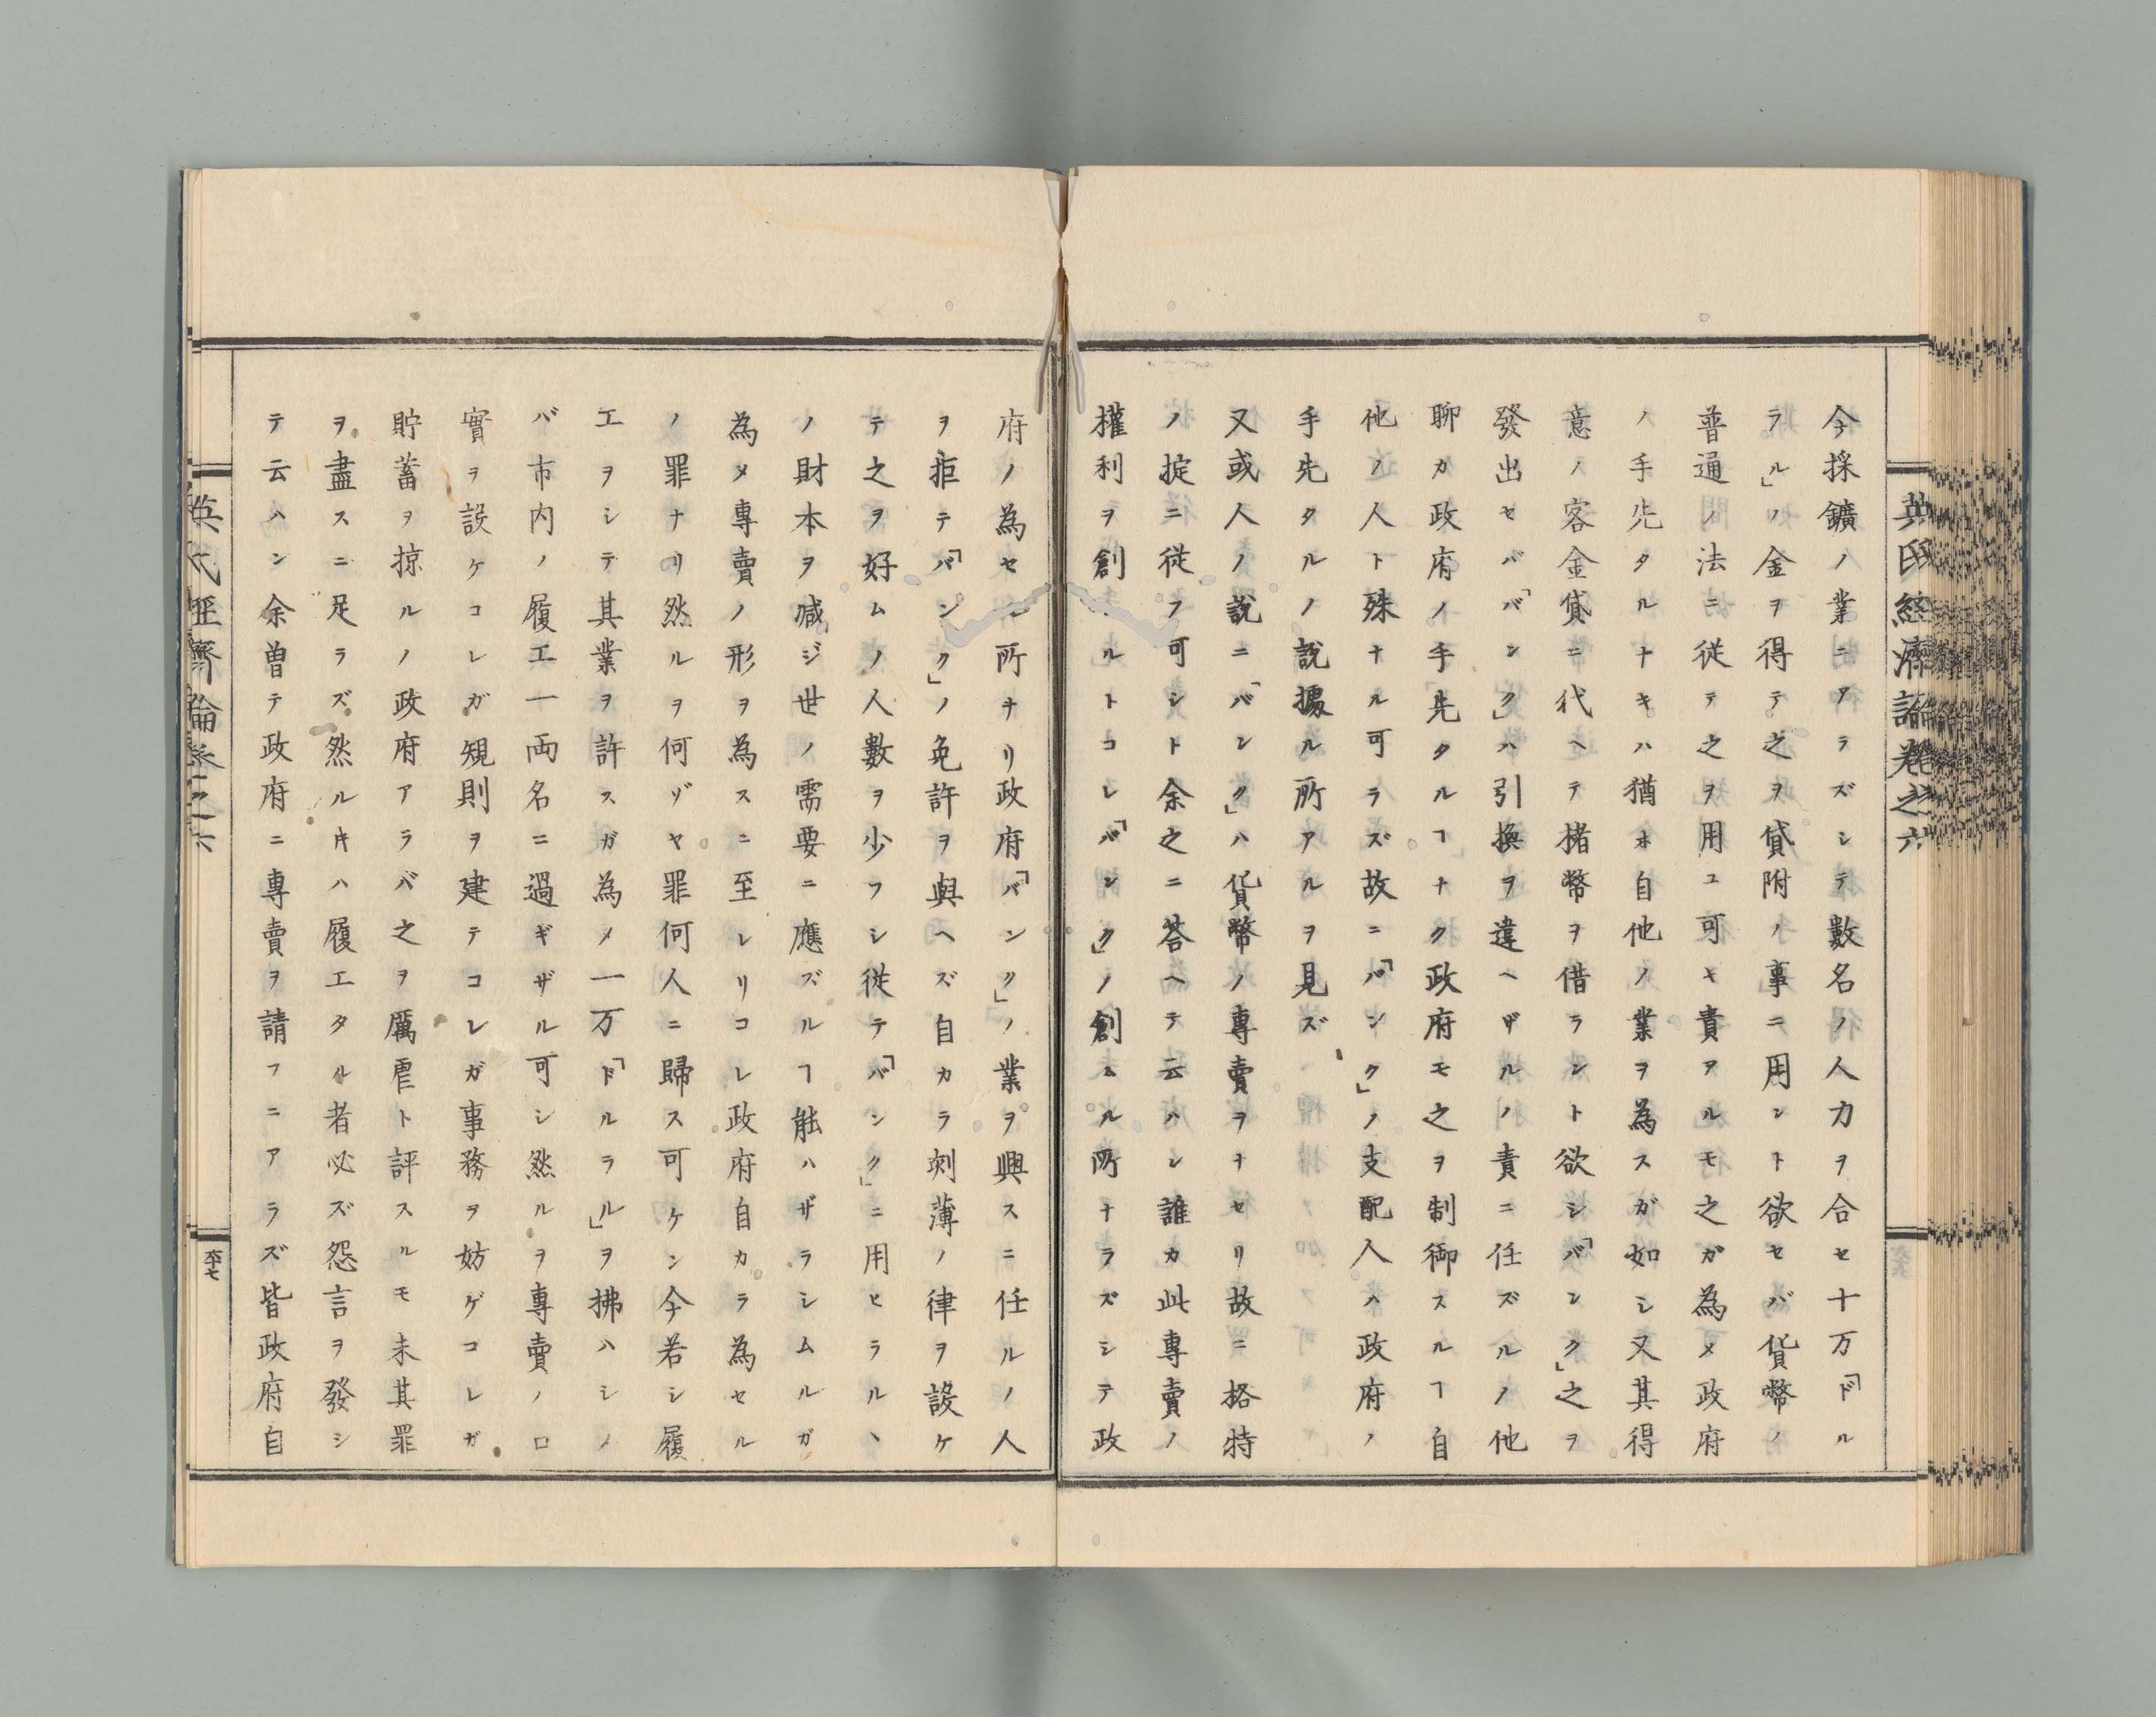 英氏経濟論卷之六
今採鑛ノ業ニアラズシテ數名ノ人力ヲ合セ十万「ドル
ラル」ノ金ヲ得テ之ヲ貸附ノ事ニ用ント欲セバ貨幣ノ
普通ノ法ニ從テ之ヲ用ユ可キ責アルモ之ガ為メ政府
ノ手先タルナキハ猶ホ自他ノ業ヲ為スガ如シ又其得
意ノ客金貸ニ代ヘテ楮幣ヲ借ラント欲シ「バンク」之ヲ
發出セバ「バンク」ハ引換ヲ違ヘザルノ責ニ任ズルノ他
聊カ政府ノ手先タルヿナク政府モ之ヲ制御スルヿ自
他ノ人ト殊ナル可ラズ故ニ「バンク」ノ支配人ハ政府ノ
手先タルノ說據ル所アルヲ見ズ
又或人ノ說ニ「バンク」ハ貨幣ノ專賣ヲナセリ故ニ格特
ノ掟ニ從フ可シト余之ニ荅ヘテ云ハン誰カ此專賣ノ
權利ヲ創ムルトコレ「バンク」ノ創ムル所ナラズシテ政
府ノ為セシ所ナリ政府「バンク」ノ業ヲ興スニ任ルノ人
ヲ拒テ「バンク」ノ免許ヲ與ヘズ自カラ刻薄ノ律ヲ設ケ
テ之ヲ好ムノ人數ヲ少フシ從テ「バンク」ニ用ヒラルヽ
ノ財本ヲ减ジ世ノ需要ニ應ズルヿ能ハザラシムルガ
為メ專賣ノ形ヲ為スニ至レリコレ政府自カラ為セル
ノ罪ナリ然ルヲ何ゾヤ罪何人ニ歸ス可ケン今若シ履
工ヲシテ其業ヲ許スガ為メ一万「ドルラル」ヲ拂ハシメ
バ市内ノ履工一両名ニ過ギザル可シ然ルヲ專賣ノ口
實ヲ設ケコレガ規則ヲ建テコレガ事務ヲ妨ゲコレガ
貯蓄ヲ掠ルノ政府アラバ之ヲ厲虐ト評スルモ未其罪
ヲ盡スニ足ラズ然ル𪜈ハ履工タル者必ズ怨言ヲ發シ
テ云ハン余曽テ政府ニ專賣ヲ請フニアラズ皆政府自
英氏經齊論卷之六
六十七